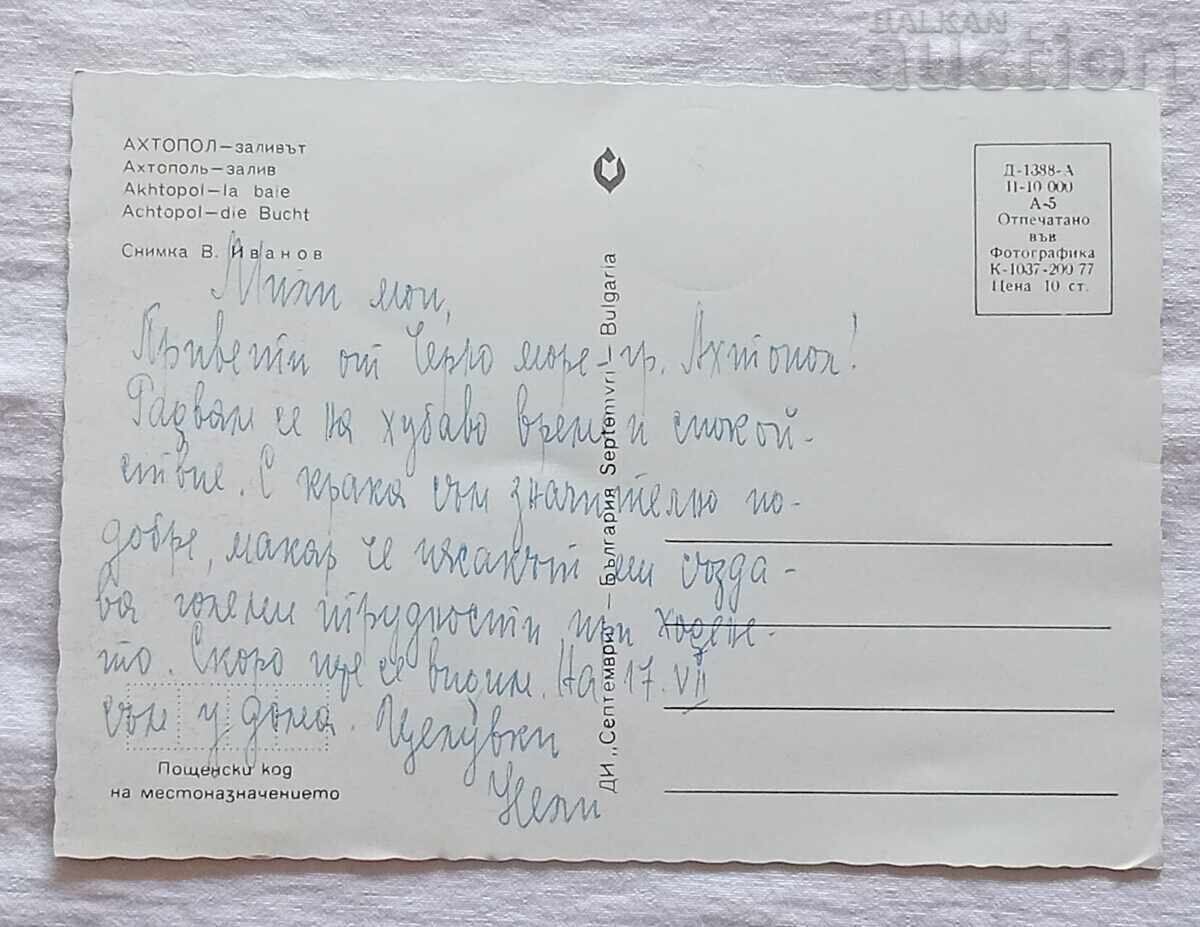 BALKAN
auction
АХТОПОЛ—заливът
Ахтополь—залив
Akhtopol—la baie
Achtopol—die Bucht
Снимка В. Иванов
Д-1388-А
II-10 000
А-5
Отпечатано
във
Фотографика
К-1037-200 77
Цена 10 ст.
ДИ „Септември“ — България Septemvri — Bulgaria
Мили мои,
Привети от Черно море - гр. Ахтопол!
Радвам се на хубаво време и спокой-
ствие. С крака съм значително по-
добре, макар че пясакът ми създа-
ва големи трудности при ходене-
то. Скоро ще се видим. На 17. VII
съм у дома. Целувки
Нели
Пощенски код
на местоназначението